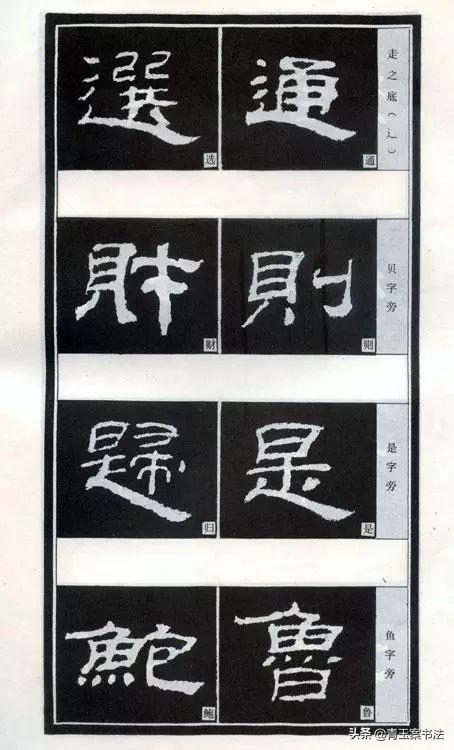 走之底（辶）
通
通
選
选
贝字旁
則
则
財
财
是字旁
是
是
歸
归
鱼字旁
魯
鲁
鮑
鲍
头条 @青玉案书法